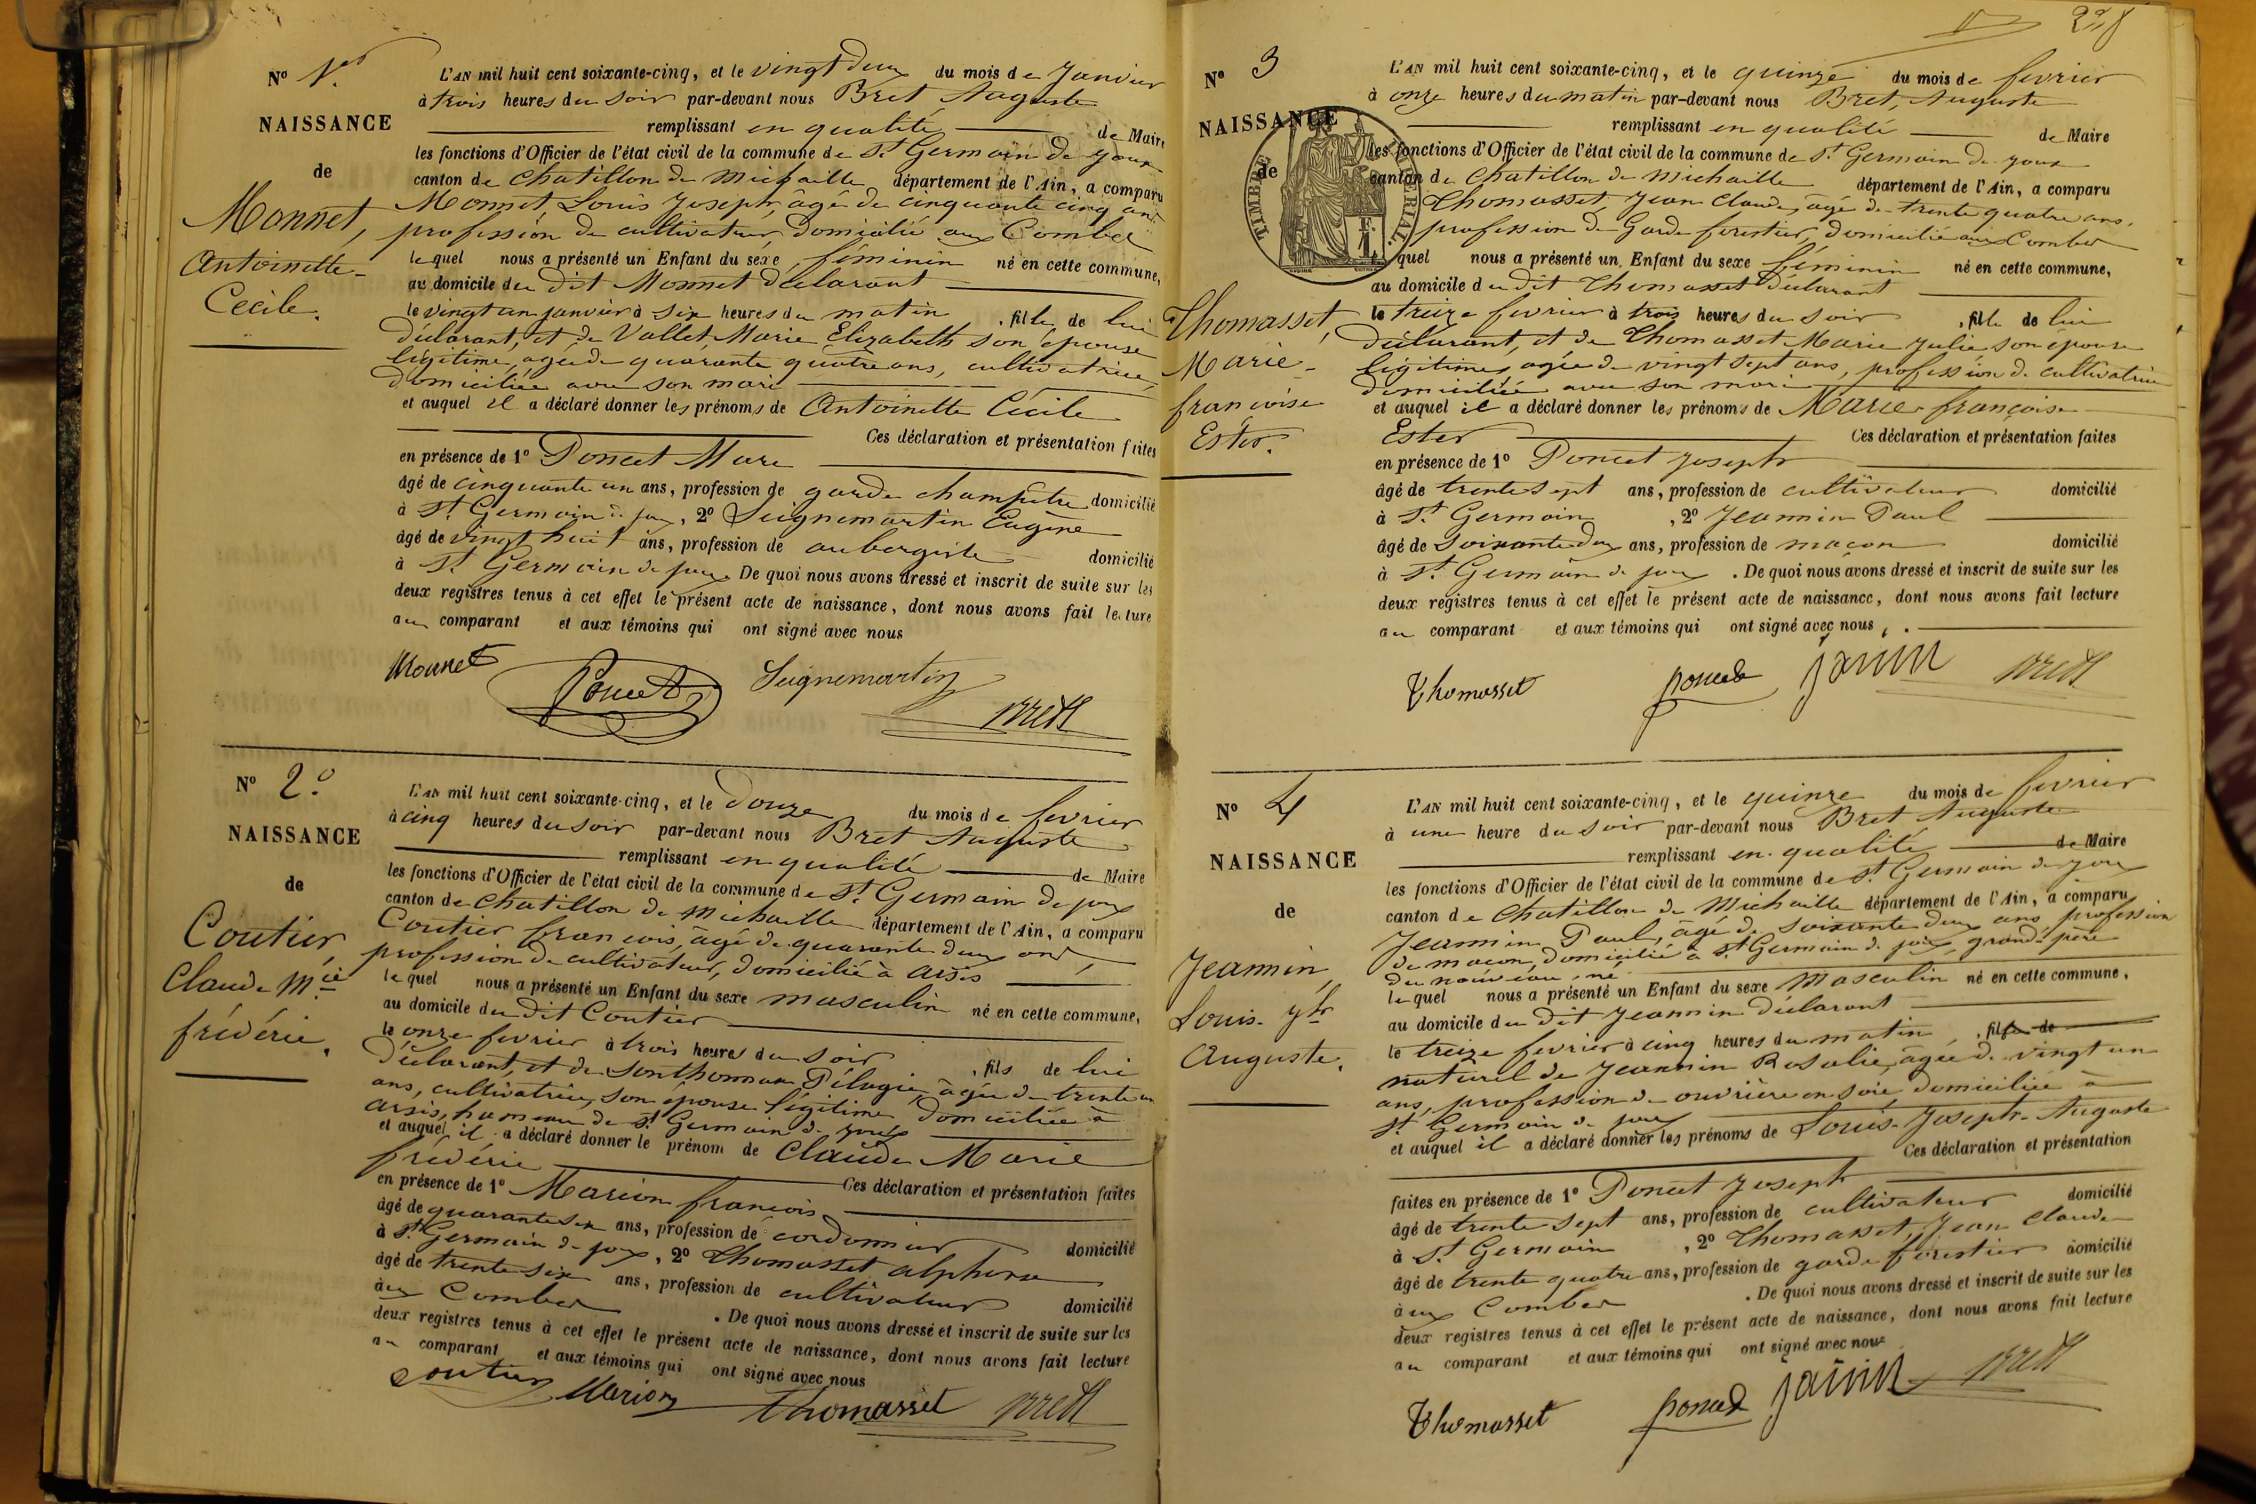 N° 1er
NAISSANCE
de
Monnet,
Antoinette-
Cécile.
L'AN mil huit cent soixante-cinq, et le vingt deux du mois de Janvier
à trois heures du Soir par-devant nous Bret Auguste
remplissant en qualité de Maire
les fonctions d'Officier de l'état civil de la commune de St Germain de joux
canton de Chatillon de Michaille département de l'Ain, a comparu
Monnet Louis Joseph, âgé de cinquante cinq ans
profession de cultivateur, domicilié aux Combes
lequel nous a présenté un Enfant du sexe féminin né en cette commune,
au domicile du dit Monnet déclarant
le vingt un janvier à six heures du matin, fille de lui
déclarant, et de Vallet Marie Elizabeth son épouse
légitime, agée de quarante quatre ans, cultivatrice,
domiciliée avec son mari
et auquel il a déclaré donner les prénoms de Antoinette Cécile
Ces déclaration et présentation faites
en présence de 1° Poncet Marc
âgé de cinquante un ans, profession de garde champêtre domicilié
à St Germain de joux, 2° Seignemartin Eugène
âgé de vingt huit ans, profession de aubergiste domicilié
à St Germain de joux. De quoi nous avons dressé et inscrit de suite sur les
deux registres tenus à cet effet le présent acte de naissance, dont nous avons fait lecture
au comparant et aux témoins qui ont signé avec nous
Monnet Poncet Seignemartin Brett
N° 2°
NAISSANCE
de
Coutier,
Claude Mie
frédéric.
L'AN mil huit cent soixante-cinq, et le douze du mois de fevrier
à cinq heures du soir par-devant nous Bret Auguste
remplissant en qualité de Maire
les fonctions d'Officier de l'état civil de la commune de St Germain de joux
canton de Chatillon de Michaille département de l'Ain, a comparu
Coutier françois, âgé de quarante deux ans,
profession de cultivateur, domicilié à Arsis
lequel nous a présenté un Enfant du sexe masculin né en cette commune,
au domicile du dit Coutier
le onze fevrier à trois heures du soir, fils de lui
déclarant, et de Sonthonnax Pélagie, âgée de trente un
ans, cultivatrice, son épouse légitime domiciliée à
Arsis, hameau de St Germain de joux
et auquel il a déclaré donner le prénom de Claude Marie
frédéric
Ces déclaration et présentation faites
en présence de 1° Marion françois
âgé de quarante six ans, profession de cordonnier domicilié
à St Germain de joux, 2° Thomasset alphonse
âgé de trente six ans, profession de cultivateur domicilié
aux Combes. De quoi nous avons dressé et inscrit de suite sur les
deux registres tenus à cet effet le présent acte de naissance, dont nous avons fait lecture
au comparant et aux témoins qui ont signé avec nous
Coutier Marion Thomasset Brett
N° 3
NAISSANCE
de
TIMBRE IMPERIAL
Thomasset,
Marie-
françoise
Ester.
L'AN mil huit cent soixante-cinq, et le quinze du mois de fevrier
à onze heures du matin par-devant nous Bret, Auguste
remplissant en qualité de Maire
les fonctions d'Officier de l'état civil de la commune de St Germain de joux
canton de Chatillon de Michaille département de l'Ain, a comparu
Thomasset Jean Claude, âgé de trente quatre ans,
profession de Garde forestier, domicilié aux Combes
lequel nous a présenté un Enfant du sexe féminin né en cette commune,
au domicile du dit Thomasset déclarant
le treize fevrier à trois heures du soir, fille de lui
déclarant, et de Thomasset Marie Julie son épouse
légitime, agée de vingt sept ans, profession de cultivatrice
domiciliée avec son mari
et auquel il a déclaré donner les prénoms de Marie françoise
Ester
Ces déclaration et présentation faites
en présence de 1° Poncet Joseph
âgé de trente sept ans, profession de cultivateur domicilié
à St Germain, 2° Jeannin Paul
âgé de soixante deux ans, profession de maçon domicilié
à St Germain de joux. De quoi nous avons dressé et inscrit de suite sur les
deux registres tenus à cet effet le présent acte de naissance, dont nous avons fait lecture
au comparant et aux témoins qui ont signé avec nous.
Thomasset poncet janin Brett
N° 4
NAISSANCE
de
Jeannin,
Louis Jph
Auguste.
L'AN mil huit cent soixante-cinq, et le quinze du mois de fevrier
à une heure du soir par-devant nous Bret Auguste
remplissant en qualité de Maire
les fonctions d'Officier de l'état civil de la commune de St Germain de joux
canton de Chatillon de Michaille département de l'Ain, a comparu
Jeannin Paul, âgé de soixante deux ans, profession
de maçon, domicilié à St Germain de joux, grand-père
du nouveau né
lequel nous a présenté un Enfant du sexe masculin né en cette commune,
au domicile du dit Jeannin déclarant
le treize fevrier à cinq heures du matin, fils de
naturel de Jeannin Rosalie, agée de vingt un
ans, profession de ouvrière en soie, domiciliée à
St Germain de joux
et auquel il a déclaré donner les prénoms de Louis-Joseph-Auguste
Ces déclaration et présentation
faites en présence de 1° Poncet Joseph
âgé de trente sept ans, profession de cultivateur domicilié
à St Germain, 2° Thomasset, Jean Claude
âgé de trente quatre ans, profession de garde forestier domicilié
aux Combes. De quoi nous avons dressé et inscrit de suite sur les
deux registres tenus à cet effet le présent acte de naissance, dont nous avons fait lecture
au comparant et aux témoins qui ont signé avec nous
Thomasset poncet janin Brett